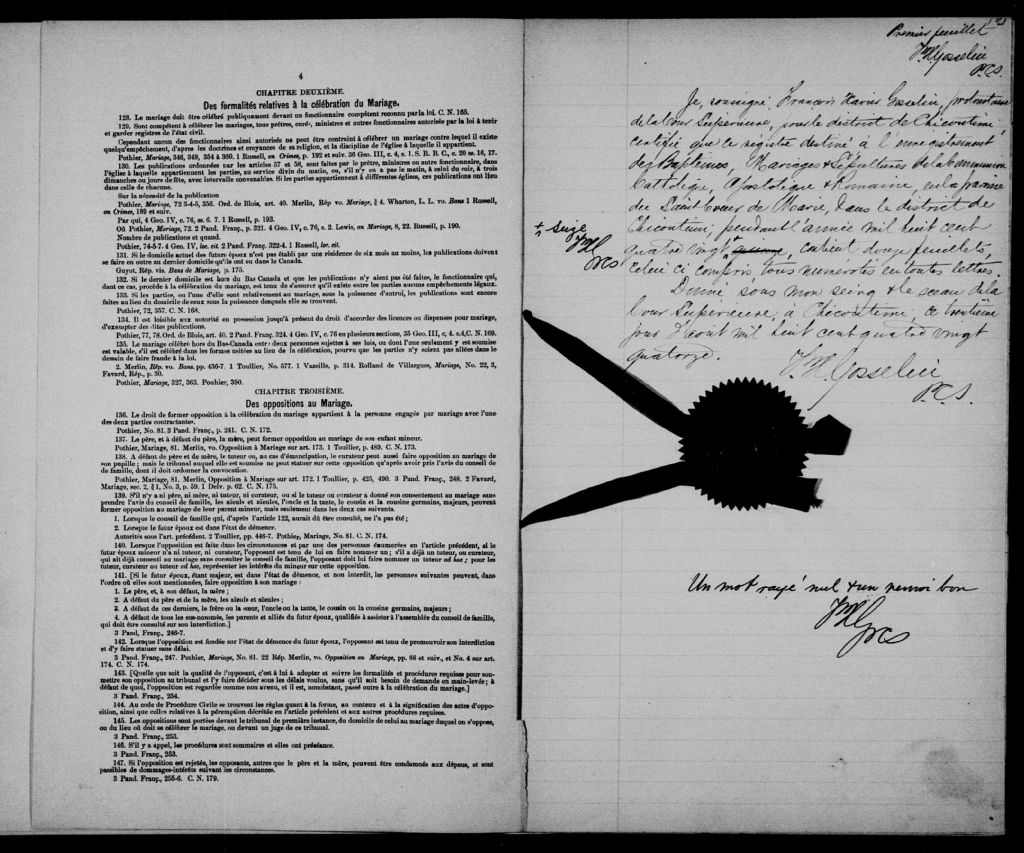 4
CHAPITRE DEUXIÈME.
Des formalités relatives à la célébration du Mariage.
128. Le mariage doit être célébré publiquement devant un fonctionnaire compétent reconnu par la loi. C. N. 165.
129. Sont compétents à célébrer les mariages, tous prêtres, curés, ministres et autres fonctionnaires autorisés par la loi à tenir
et garder registres de l'état civil.
Cependant aucun des fonctionnaires ainsi autorisés ne peut être contraint à célébrer un mariage contre lequel il existe
quelqu'empêchement, d'après les doctrines et croyances de sa religion, et la discipline de l'église à laquelle il appartient.
Pothier, Mariage, 346, 349, 354 à 360. 1 Russell, on Crimes, p. 192 et suiv. 35 Geo. III, c. 4, s. 1. S. R. B. C., c. 20 ss. 16, 17.
130. Les publications ordonnées par les articles 57 et 58, sont faites par le prêtre, ministre ou autre fonctionnaire, dans
l'église à laquelle appartiennent les parties, au service divin du matin, ou, s'il n'y en a pas le matin, à celui du soir, à trois
dimanches ou jours de fête, avec intervalle convenables. Si les parties appartiennent à différentes églises, ces publications ont lieu
dans celle de chacune.
Sur la nécessité de la publication
Pothier, Mariage, 72 3-4-5, 356. Ord. de Blois, art. 40. Merlin, Rép vo. Mariage, § 4. Wharton, L. L. vo. Bans 1 Russell,
on Crimes, 189 et suiv.
Par qui, 4 Geo. IV, c. 76, ss. 6. 7. 1 Russell, p. 193.
Où Pothier, Mariage, 72. 2 Pand. Franç., p. 321. 4 Geo. IV, c. 76, s. 2. Lewis, on Mariage, 8, 22. Russell, p. 190.
Nombre de publications et quand.
Pothier, 74-5-7. 4 Geo. IV, loc. cit. 2 Pand. Franç. 322-4. 1 Russell, loc. cit.
131. Si le domicile actuel des futurs époux n'est pas établi par une résidence de six mois au moins, les publications doivent
se faire en outre au dernier domicile qu'ils ont eu dans le Canada.
Guyot, Rép. vis. Bans de Mariage, p. 175.
132. Si le dernier domicile est hors du Bas Canada et que les publications n'y aient pas été faites, le fonctionnaire qui,
dans ce cas, procède à la célébration du mariage, est tenu de s'assurer qu'il existe entre les parties aucuns empêchements légaux.
133. Si les parties, ou l'une d'elle sont relativement au mariage, sous la puissance d'autrui, les publications sont encore
faites au lieu du domicile de ceux sous la puissance desquels elle se trouvent.
Pothier, 72, 357. C. N. 168.
134. Il est loisible aux autorités en possession jusqu'à présent du droit d'accorder des licences ou dispenses pour mariage,
d'exempter des dites publications.
Pothier, 77, 78. Ord. de Blois, art. 40. 2 Pand. Franç. 324. 4 Geo. IV, c. 76 en plusieurs sections, 35 Geo. III, c. 4. s.4, C. N. 169.
135. Le mariage célébré hors du Bas-Canada entre deux personnes sujettes à ses lois, ou dont l'une seulement y est soumise
est valable, s'il est célébré dans les formes usitées au lieu de la célébration, pourvu que les parties n'y soient pas allées dans le
dessein de faire fraude à la loi.
2. Merlin, Rép. vo. Bans. pp. 436-7. 1 Toullier, No. 577. 1 Vazeille, p. 314. Rolland de Villargues, Mariage, No. 22, 3,
Favard, Rép., p. 30.
Pothier, Mariage, 327, 363. Pouhier, 390.
CHAPITRE TROISIÈME.
Des oppositions au Mariage.
136. Le droit de former opposition à la célébration du mariage appartient à la personne engagée par mariage avec l'une
des deux parties contractantes.
Pothier, No. 81. 3 Pand. Franç., p. 241. C. N. 172.
137. Le père, et à défaut du père, la mère, peut former opposition au mariage de son enfant mineur.
Pothier, Mariage, 81. Merlin, vo. Opposition à Mariage sur art. 173. 1 Toullier, p. 489. C. N. 173.
138. A défaut de père et de mère, le tuteur ou, au cas d'émancipation, le curateur peut aussi faire opposition au mariage de
son pupille ; mais le tribunal auquel elle est soumise ne peut statuer sur cette opposition qu'après avoir pris l'avis du conseil de
de famille, dont il doit ordonner la convocation.
Pothier, Mariage, 81. Merlin, Opposition à Mariage sur art. 172. 1 Toullier, p. 425, 490. 3 Pand. Franç., 248. 2 Favard,
Mariage, sec. 2, § 1, No. 3, p. 59. 1 Delv. p. 62. C. N. 175.
139. S'il n'y a ni père, ni mère, ni tuteur, ni curateur, ou si le tuteur ou curateur a donné son consentement au mariage sans
prendre l'avis du conseil de famille, les aïeuls et aïeules, l'oncle et la tante, le cousin et la cousine germains, majeurs, peuvent
former opposition au mariage de leur parent mineur, mais seulement dans les deux cas suivants.
1. Lorsque le conseil de famille qui, d'après l'article 122, aurait dû être consulté, ne l'a pas été ;
2. Lorsque le futur époux est dans l'état de démence.
Autorités sous l'art. précédent. 2 Toullier, pp. 446-7. Pothier, Mariage, No. 81. C. N. 174.
140. Lorsque l'opposition est faite dans les circonstances et par une des personnes énumérées en l'article précédent, si le
futur époux mineur n'a ni tuteur, ni curateur, l'opposant est tenu de lui en faire nommer un ; s'il a déjà un tuteur, ou curateur,
qui ait déjà consenti au mariage sans consulter le conseil de famille, l'opposant doit lui faire nommer un tuteur ad hoc ; pour les
tuteur, curateur ou tuteur ad hoc, représenter les intérêts du mineur sur cette opposition.
141. [Si le futur époux, étant majeur, est dans l'état de démence, et non interdit, les personnes suivantes peuvent, dans
l'ordre où elles sont mentionnées, faire opposition à son mariage :
1. Le père, et, à son défaut, la mère ;
2. A défaut du père et de la mère, les aïeuls et aïeules ;
3. A défaut de ces derniers, le frère ou la sœur, l'oncle ou la tante, le cousin ou la cousine germains, majeurs ;
4. A défaut de tous les sus-nommés, les parents et alliés du futur époux, qualifiés à assister à l'assemblée du conseil de famille,
qui doit être consulté sur son interdiction.]
3 Pand, Franç., 246-7.
142. Lorsque l'opposition est fondée sur l'état de démence du futur époux, l'opposant est tenu de promouvoir son interdiction
et d'y faire statuer sans délai.
3 Pand. Franç., 247. Pothier, Mariage, No. 81. 22 Rép. Merlin, vo. Opposition au Mariage, pp. 88 et suiv., et No. 4 sur art.
174. C. N. 174.
143. [Quelle que soit la qualité de l'opposant, c'est à lui à adopter et suivre les formalités et procédures requises pour sou-
mettre son opposition au tribunal et l'y faire décider sous les délais voulus, sans qu'il soit besoin de demande en main-levée ; à
défaut de quoi, l'opposition est regardée comme non avenu, et il est, nonobstant, passé outre à la célébration du mariage.]
3 Pand. Franç., 254.
144. Au code de Procédure Civile se trouvent les règles quant à la forme, au contenu et à la signification des actes d'oppo-
sition, ainsi que celles relatives à la péremption décrétée en l'article précédent et aux autres procédures requises.
145. Les oppositions sont portées devant le tribunal de première instance, du domicile de celui au mariage duquel on s'oppose,
ou du lieu où doit se célébrer le mariage, ou devant un juge de ce tribunal.
3 Pand. Franç., 253.
146. S'il y a appel, les procédures sont sommaires et elles ont préséance.
3 Pand. Franç., 253.
147. Si l'opposition est rejetée, les opposants, autres que le père et la mère, peuvent être condamnés aux dépens, et sont
passibles de dommages-intérêts suivant les circonstances.
3 Pand. Franç., 255-6. C. N. 179.
Premier feuillet
F.X. Gosselin
P.C.S.
Je, soussigné, François Xavier Gosselin, protonotaire
de la Cour Supérieure, pour le district de Chicoutimi,
certifie que ce registre destiné à l'enregistrement
des Baptêmes, Mariages & Sépultures de la Communion
Catholique, Apostolique & Romaine, en la paroisse
du Saint Coeur de Marie, dans le district de
Chicoutimi, pendant l'année mil huit cent
quatre vingt quinze, contient douze feuillets,
celui ci compris, tous numérotés en toutes lettres.
+ seize
Donné sous mon seing & le sceau de la
Cour Supérieure, à Chicoutimi, ce trentième
jour d'août mil huit cent quatre vingt
quatorze.
F.X. Gosselin
P.C.S.
Un mot rayé nul & un renvoi bon